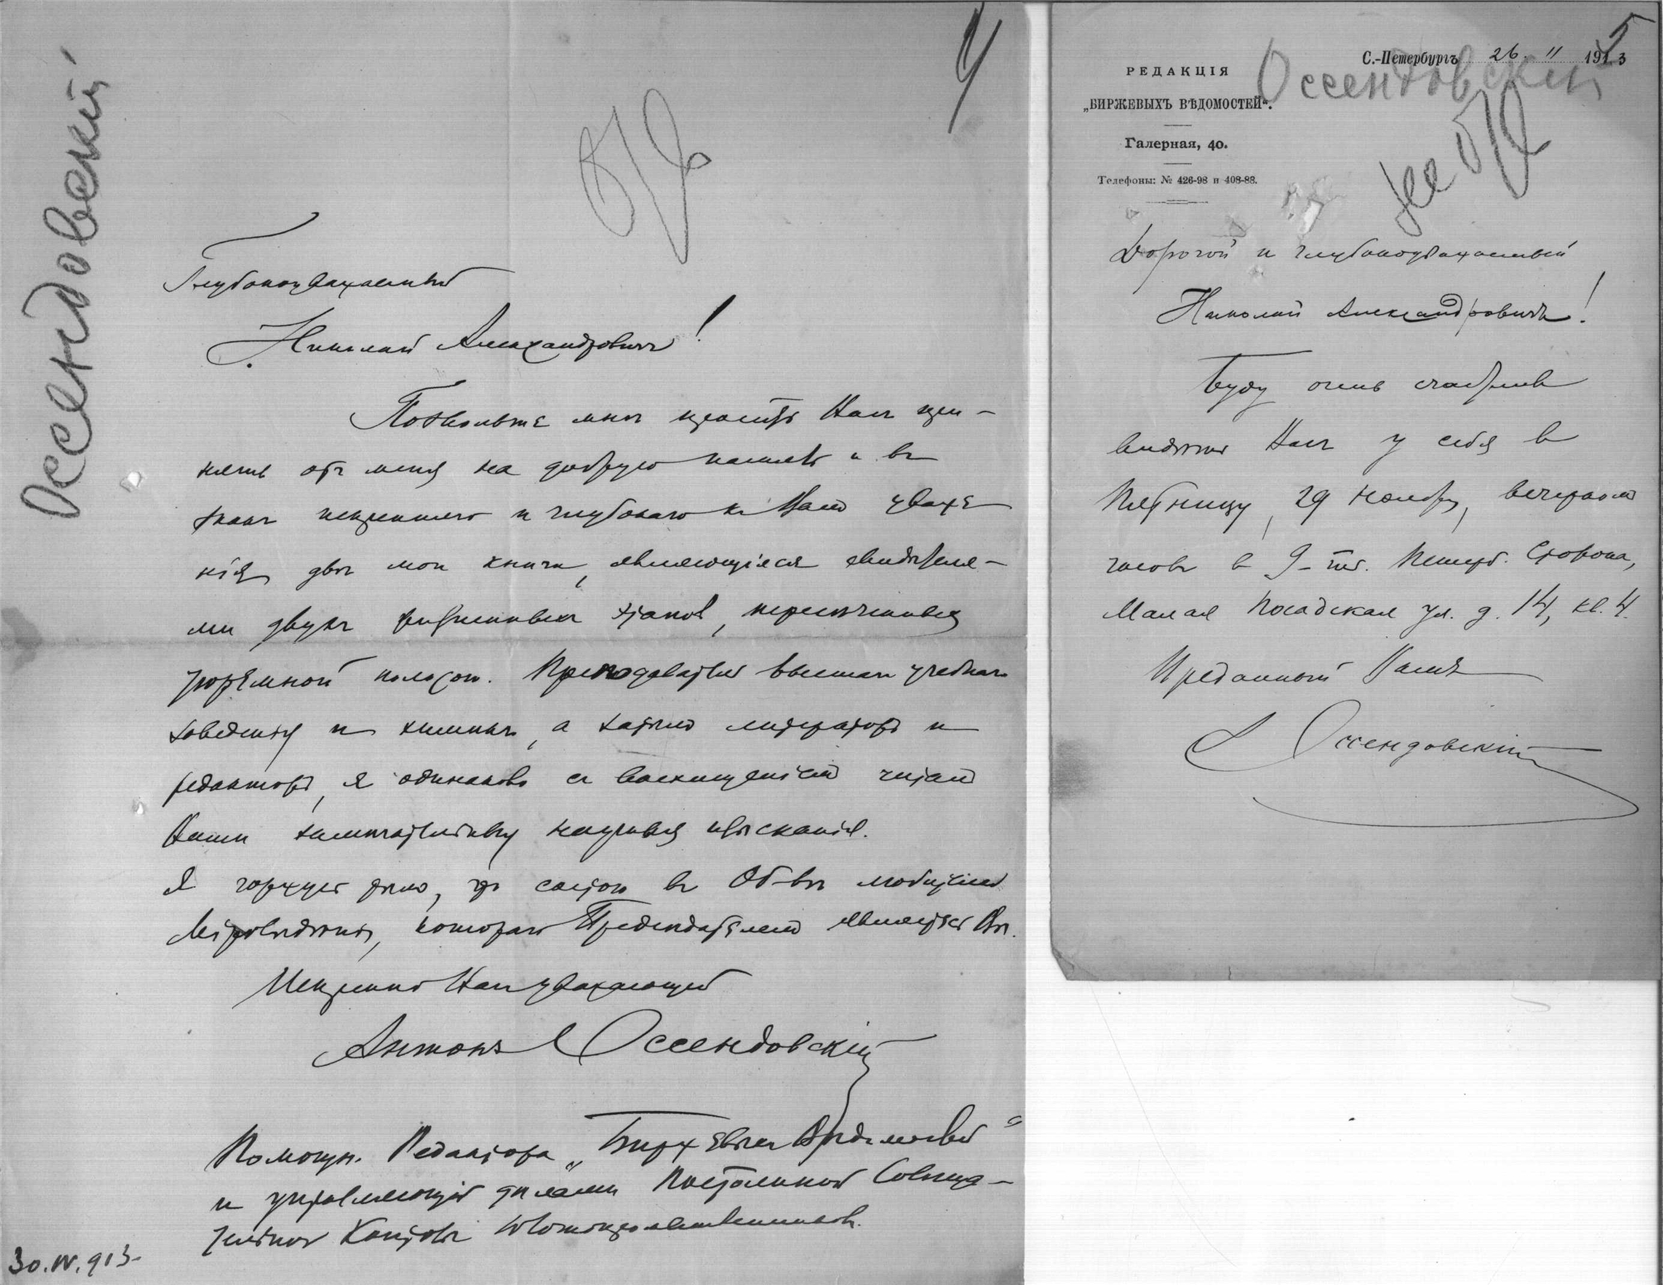 Оссендовскій
4
Глубокоуважаемый
Николай Александровичъ!
Позвольте мнѣ просить Васъ при-
нять отъ меня на добрую память и въ
знакъ искренняго и глубокаго къ Вамъ уваже
нія двѣ мои книги, являющіяся свидѣтеля-
ми двухъ жизненныхъ этаповъ, пересѣченныхъ
тюремной полосою. Преподаватель высшихъ учебныхъ
заведеній и химикъ, а затѣмъ литераторъ и
редакторъ, я одинаково съ восхищеніемъ читаю
Ваши замѣчательныя научныя изысканія.
Я горжусь тѣмъ, что состою въ Об-вѣ любителей
Міровѣдѣнія, котораго Предсѣдателемъ являетесь Вы.
Искренно Васъ уважающій
Антонъ Оссендовскій
Помощн. Редактора „Биржевыхъ Вѣдомостей"
и управляющій дѣлами Постоянной Совѣща-
тельной Конторы Золотопромышленниковъ.
30.IV.913.
5
РЕДАКЦІЯ
„БИРЖЕВЫХЪ ВѢДОМОСТЕЙ“.
Галерная, 40.
Телефоны: № 426-98 и 408-88.
С.-Петербургъ 26. 11 1913
Оссендовскій
Дорогой и глубокоуважаемый
Николай Александровичъ!
Буду очень счастливъ
видѣть Васъ у себя въ
Пятницу, 29 ноября, вечеромъ
часовъ въ 9-ть. Петерб. Сторона,
Малая Посадская ул. д. 14, кв. 4.
Преданный Вамъ
Оссендовскій